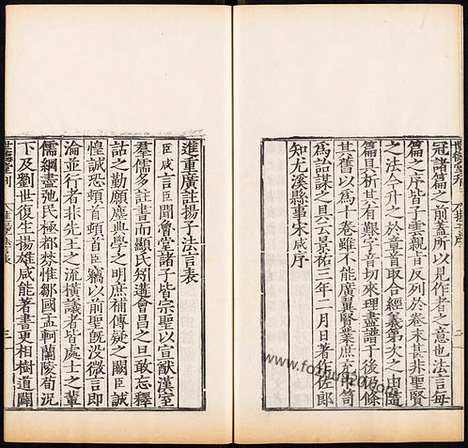 冠諸篇之前蓋所以見作者之意也法言每
篇之序皆子雲親旨反列於卷末甚非聖賢
之法今升之於章首取合經義第次之由隨
篇具析其有艱字音切來理盡諸子及條
其舊以爲十卷雖不能言奧翼賢業亦冀有苟
爲詁謀之具云景祐三年二月日著作佐郎
知尤溪縣事宋咸序
進重廣註揚子法言表
臣咸言臣聞會堂諸子皆宗聖以宣猷漢室
羣儒多註書而顯氏矧遘會昌之旦敢忘釋
詁之勤願塵典學之明庶補傳疑之闕臣誠
惶誠恐頓首頓首臣竊以前聖旣沒微言卽
淪並行者非先王之流橫議者皆處士之輩
儒綱盡弛民極都焚惟鄒國孟軻蘭陵荀況
下及劉世復生揚雄咸能著書更相樹道闢